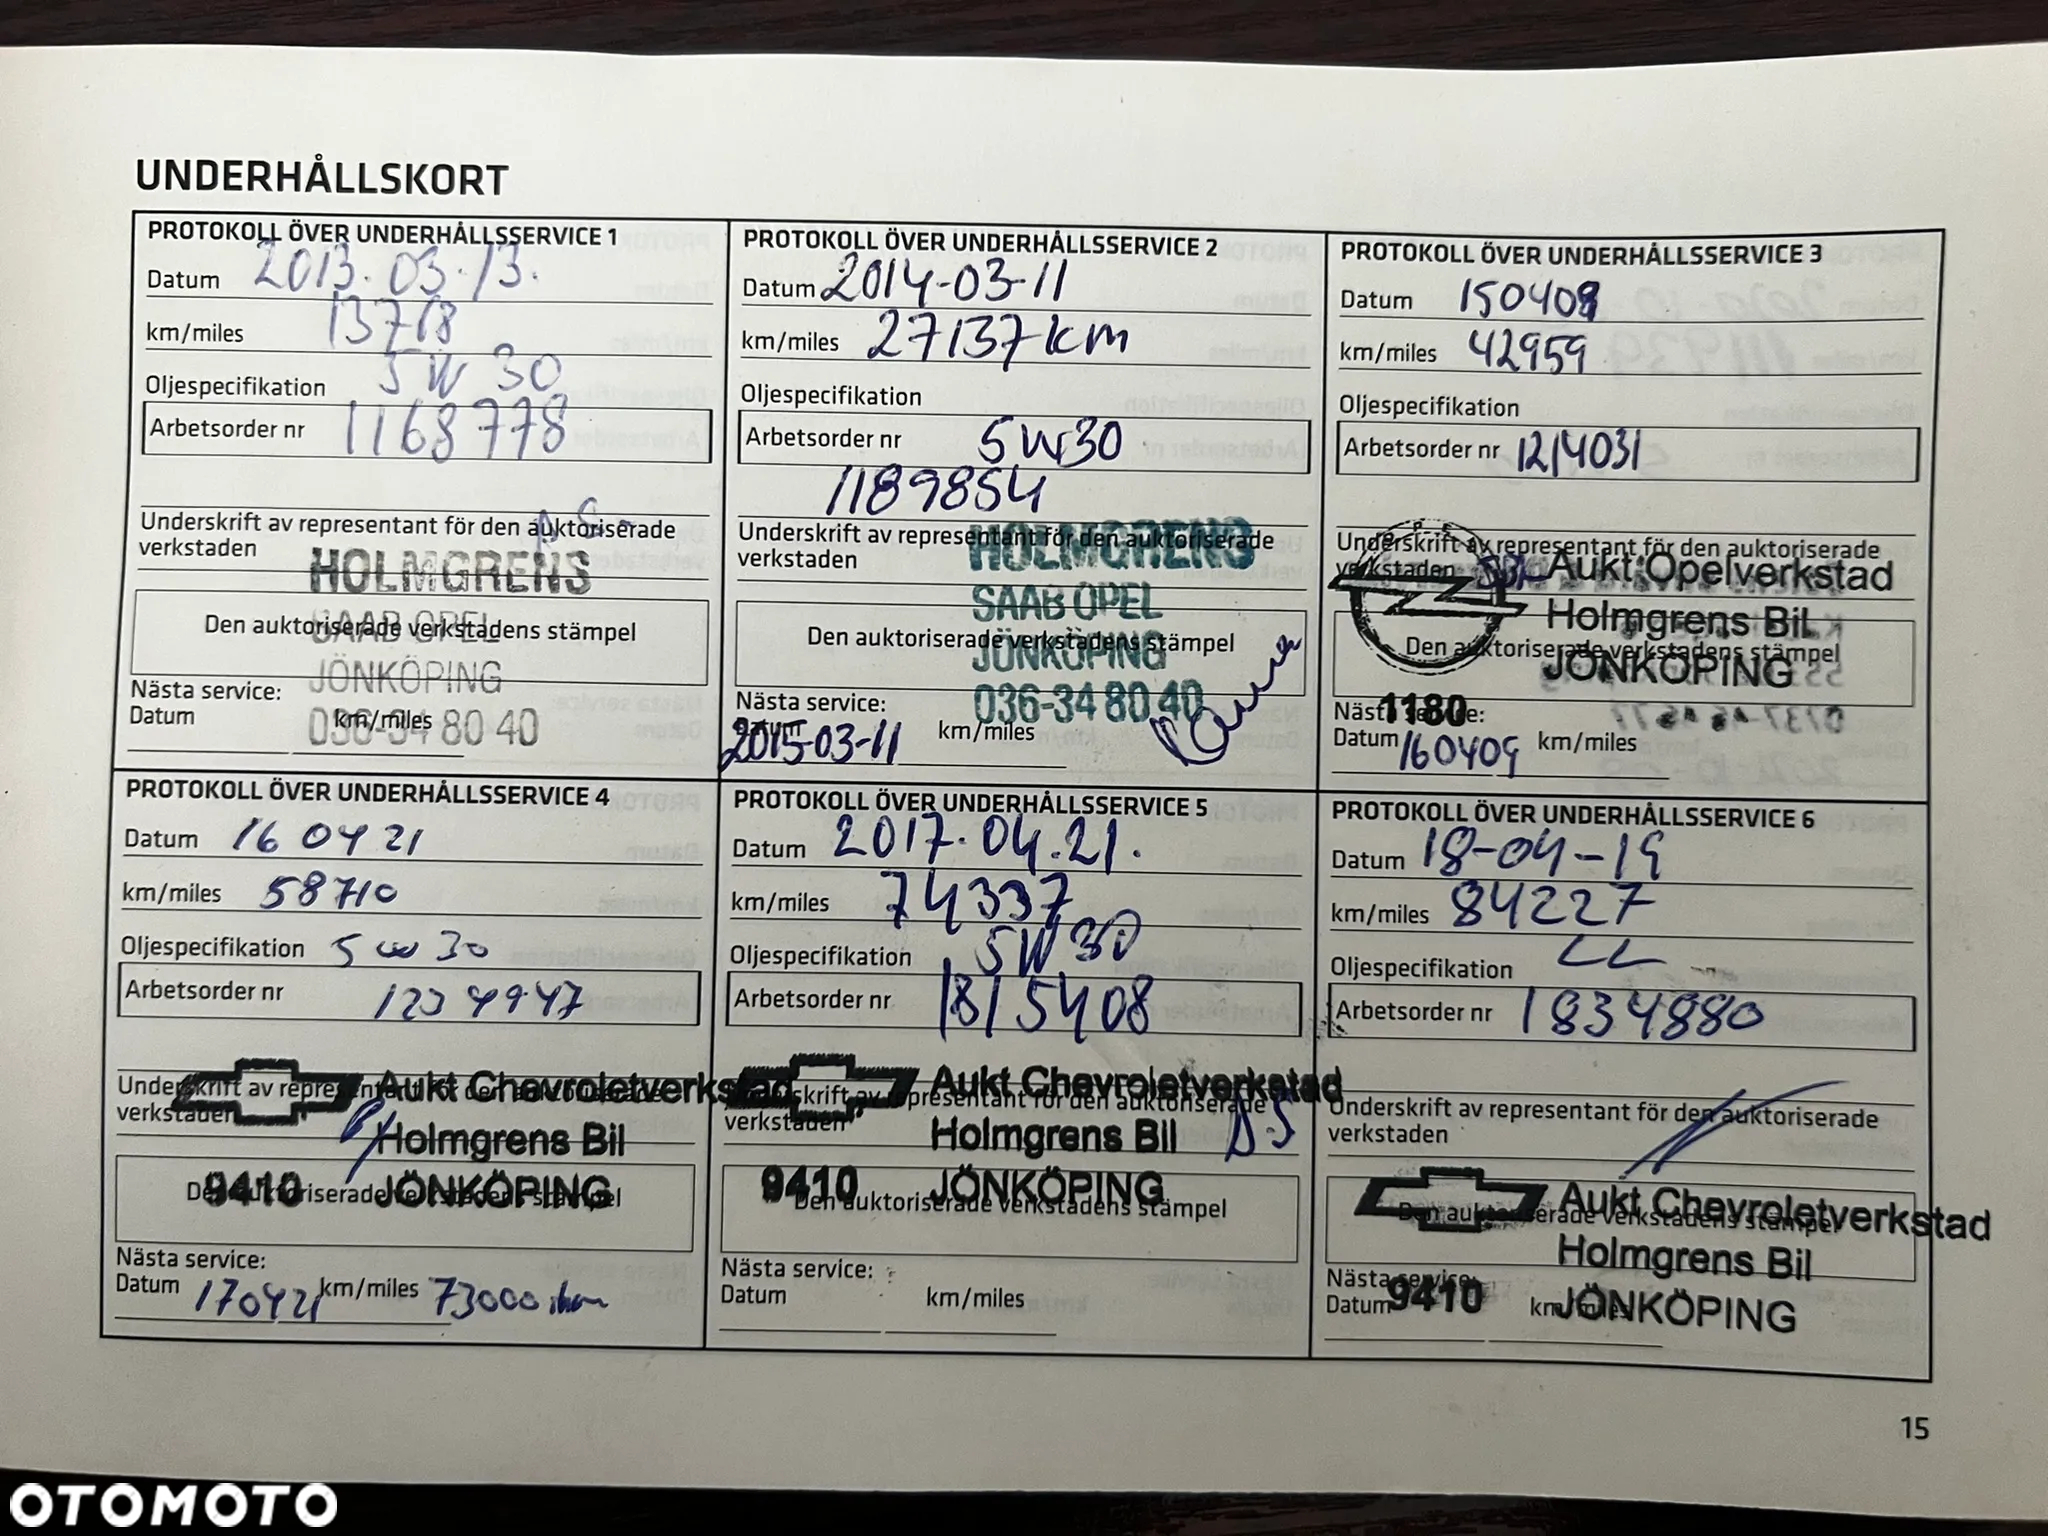 UNDERHÅLLSKORT
PROTOKOLL ÖVER UNDERHÅLLSSERVICE 1
Datum 2013.03.13.
km/miles 13718
Oljespecifikation 5W 30
Arbetsorder nr 1168778
Underskrift av representant för den auktoriserade
verkstaden
HOLMGRENS
SAAB OPEL
Den auktoriserade verkstadens stämpel
JÖNKÖPING
036-34 80 40
Nästa service:
Datum km/miles
PROTOKOLL ÖVER UNDERHÅLLSSERVICE 2
Datum 2014-03-11
km/miles 27137 km
Oljespecifikation
Arbetsorder nr 5W30
1189854
Underskrift av representant för den auktoriserade
verkstaden
HOLMGRENS
SAAB OPEL
Den auktoriserade verkstadens stämpel
JÖNKÖPING
036-34 80 40
Nästa service:
Datum 2015-03-11 km/miles
PROTOKOLL ÖVER UNDERHÅLLSSERVICE 3
Datum 150409
km/miles 42959
Oljespecifikation
Arbetsorder nr 1214031
Underskrift av representant för den auktoriserade
verkstaden
Aukt Opelverkstad
Holmgrens Bil
Den auktoriserade verkstadens stämpel
JÖNKÖPING
1180
Nästa service:
Datum 160409 km/miles
PROTOKOLL ÖVER UNDERHÅLLSSERVICE 4
Datum 16 04 21
km/miles 58710
Oljespecifikation 5 W 30
Arbetsorder nr 1234947
Underskrift av representant för den auktoriserade
verkstaden
Aukt Chevroletverkstad
Holmgrens Bil
9410 JÖNKÖPING
Den auktoriserade verkstadens stämpel
Nästa service:
Datum 170421 km/miles 73000
PROTOKOLL ÖVER UNDERHÅLLSSERVICE 5
Datum 2017.04.21.
km/miles 74337
Oljespecifikation 5W 30
Arbetsorder nr 1815408
Underskrift av representant för den auktoriserade
verkstaden
Aukt Chevroletverkstad
Holmgrens Bil
9410 JÖNKÖPING
Den auktoriserade verkstadens stämpel
Nästa service:
Datum km/miles
PROTOKOLL ÖVER UNDERHÅLLSSERVICE 6
Datum 18-04-19
km/miles 84227
Oljespecifikation LL
Arbetsorder nr 1834880
Underskrift av representant för den auktoriserade
verkstaden
Aukt Chevroletverkstad
Den auktoriserade verkstadens stämpel
Holmgrens Bil
9410 JÖNKÖPING
Nästa service:
Datum km/miles
15
OTOMOTO